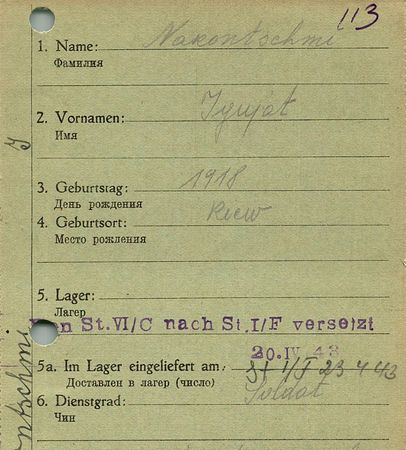 113
1. Name: Nakontschmi
Фамилия
2. Vornamen:
Имя
3. Geburtstag: 1918
День рождения
4. Geburtsort: Kiew
Место рождения
5. Lager:
Лагер
Von St.VI/C nach St.I/F versetzt
20.IV.43
5a. Im Lager eingeliefert am: St I/F 23 4 43
Доставлен в лагер (число)
6. Dienstgrad: Soldat
Чин